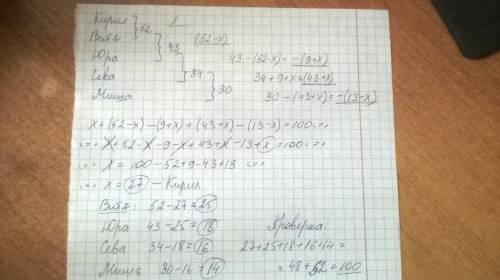 Кирил } 52 x
Витя } 43 (52-x)
Юра } 34 43-(52-x)=-(9+x)
Сева } 30 34+9+x=(43+x)
Миша 30-(43+x)=-(13-x)
x+(52-x)-(9+x)+(43+x)-(13-x)=100
x+52-x-9-x+43+x-13+x=100
x=100-52+9-43+13
x=27 - Кирил
Витя: 52-27=25
Юра 43-25=18 Проверка:
Сева 34-18=16 27+25+18+16+14=
Миша 30-16=14 =48+52=100